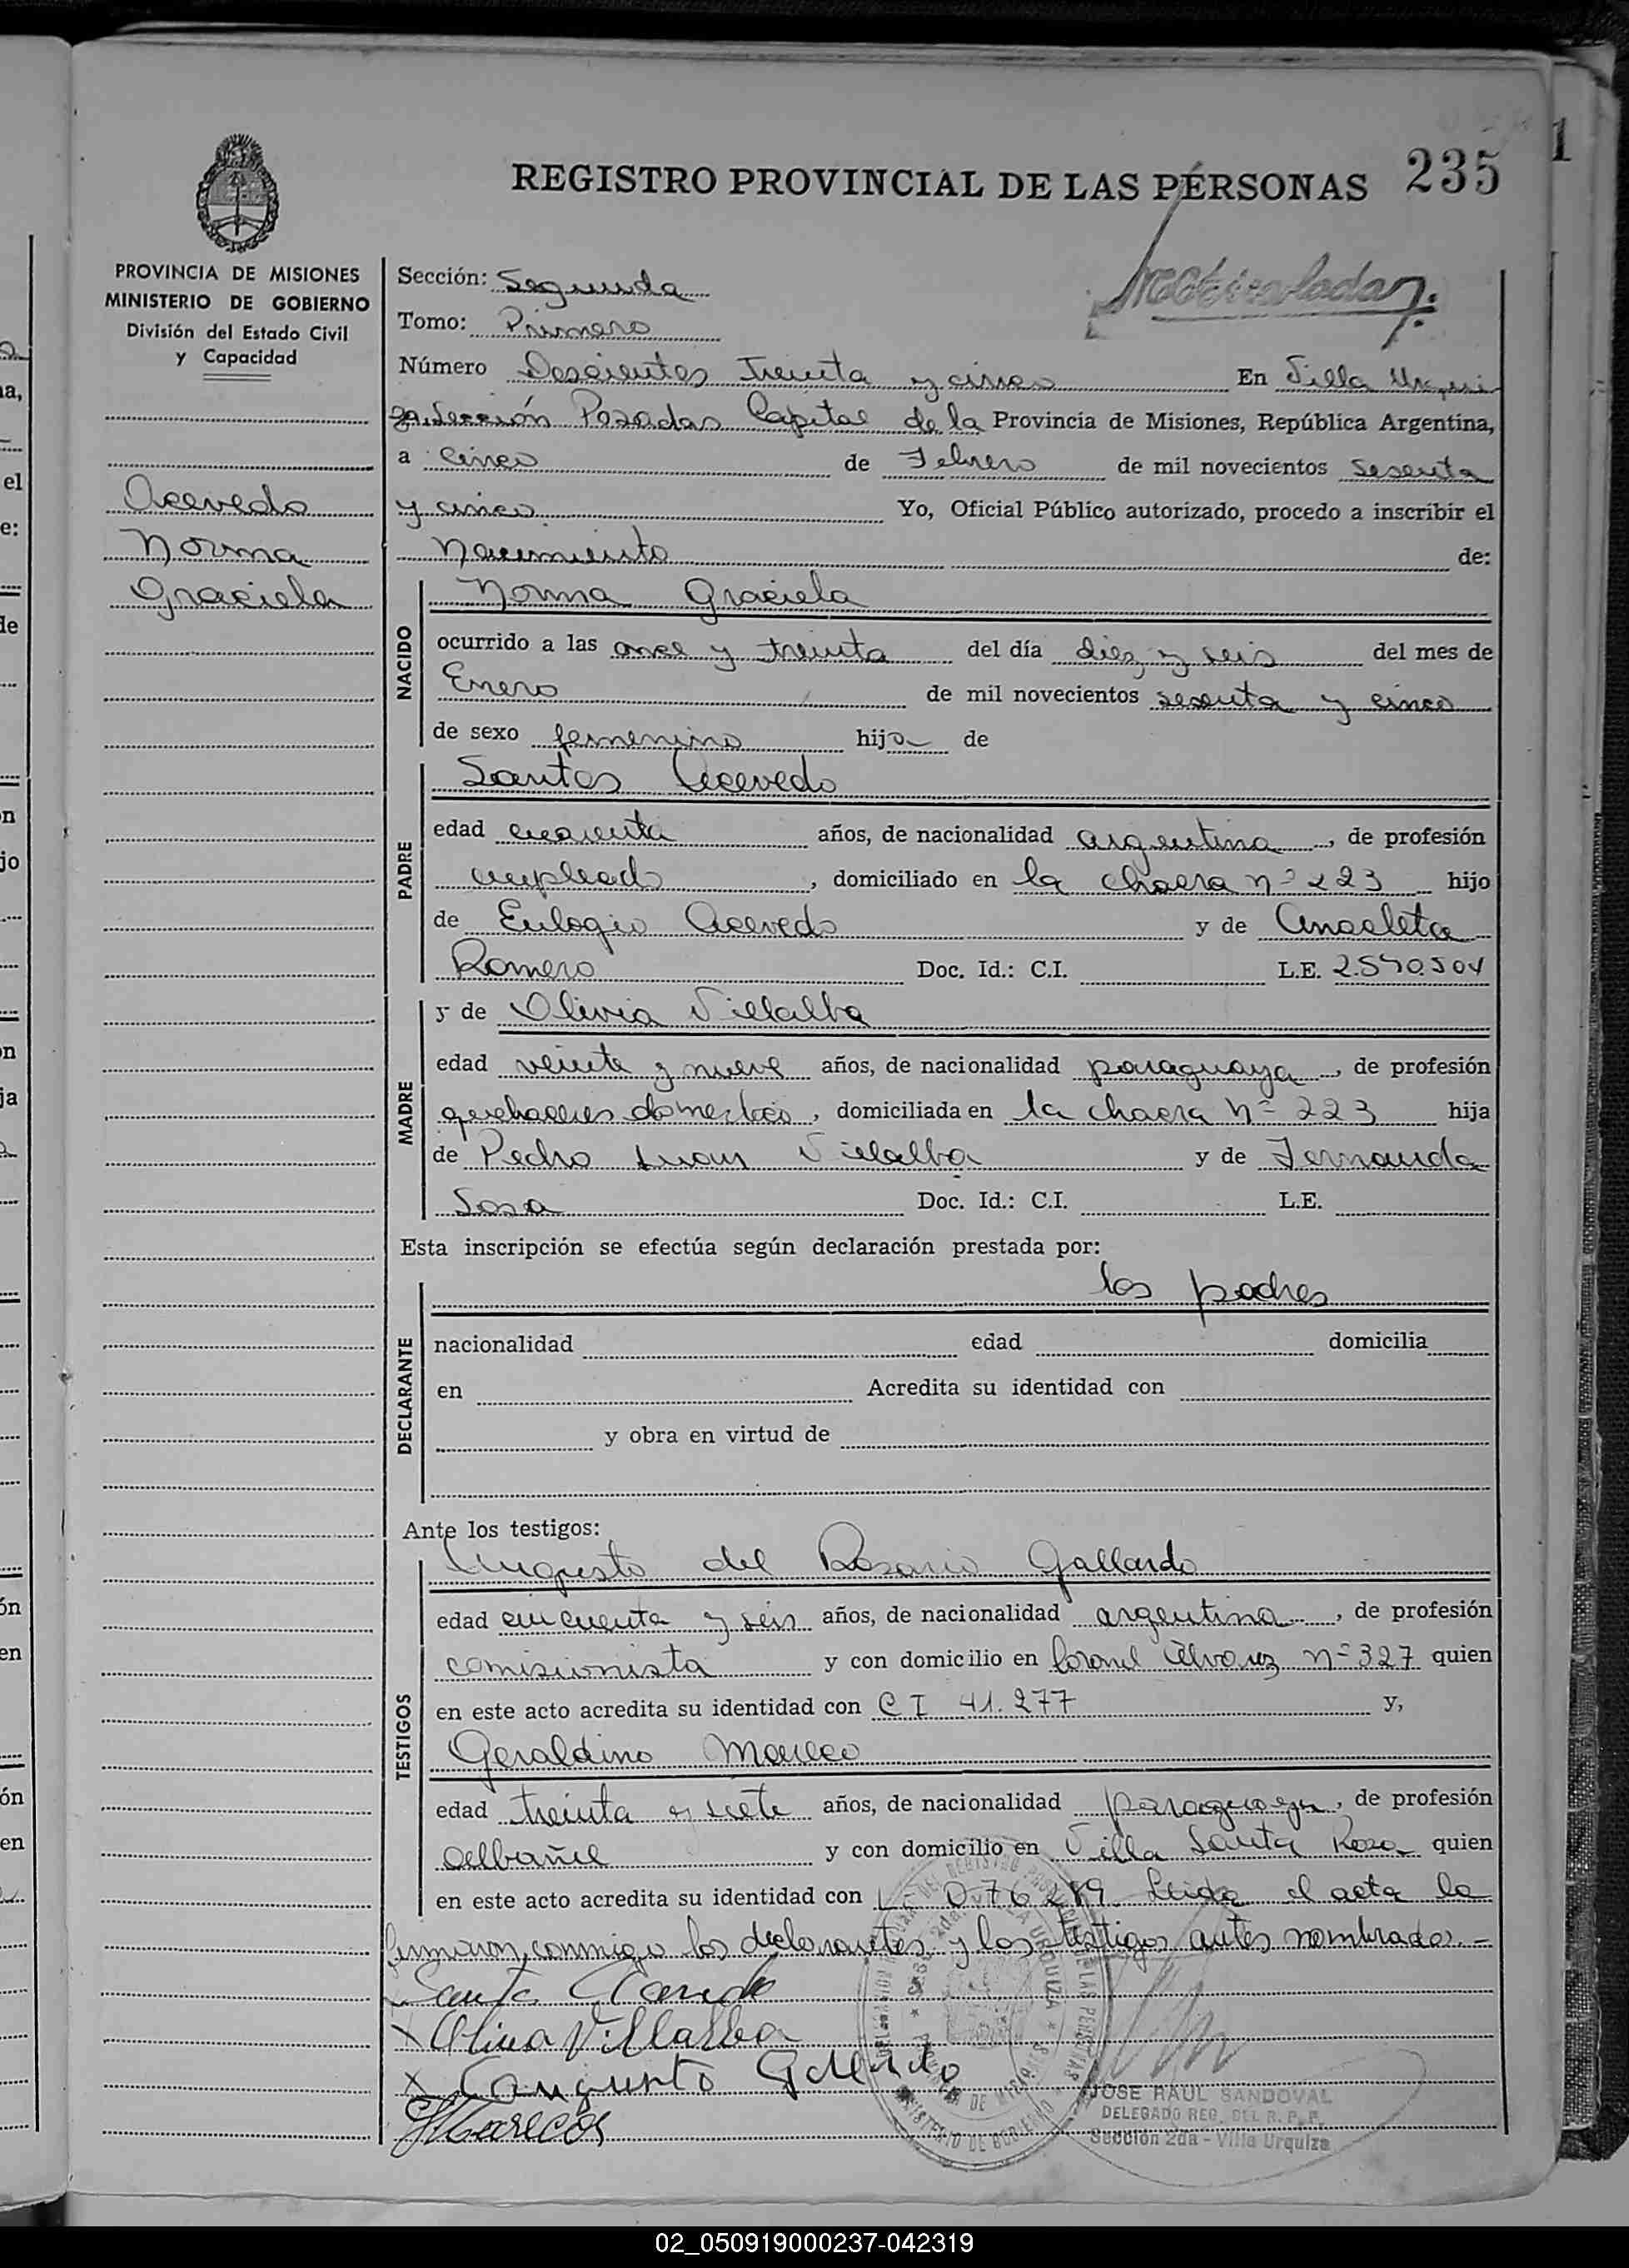 REGISTRO PROVINCIAL DE LAS PERSONAS 235
1
PROVINCIA DE MISIONES
MINISTERIO DE GOBIERNO
División del Estado Civil
y Capacidad
Acevedo
Norma
Graciela
Sección: Segunda
Tomo: Primero
Número Doscientos Treinta y cinco En Villa Urqui
za Sección Posadas Capital de la Provincia de Misiones, República Argentina,
a Cinco de Febrero de mil novecientos sesenta
y cinco Yo, Oficial Público autorizado, procedo a inscribir el
Nacimiento de:
NACIDO
Norma Graciela
ocurrido a las once y treinta del día diez y seis del mes de
Enero de mil novecientos sesenta y cinco
de sexo femenino hija de
PADRE
Santos Acevedo
edad cuarenta años, de nacionalidad argentina, de profesión
empleado, domiciliado en la chacra nº 223 hijo
de Eulogio Acevedo y de Anacleta
Romero Doc. Id.: C.I. L.E. 2.540.504
MADRE
y de Olivia Villalba
edad veinte y nueve años, de nacionalidad paraguaya, de profesión
quehaceres domesticos, domiciliada en la chacra nº 223 hija
de Pedro Juan Villalba y de Fernanda
Sosa Doc. Id.: C.I. L.E.
Esta inscripción se efectúa según declaración prestada por:
DECLARANTE
los padres
nacionalidad edad domicilia
en Acredita su identidad con
y obra en virtud de
Ante los testigos:
TESTIGOS
Augusto del Rosario Gallardo
edad cincuenta y seis años, de nacionalidad argentina, de profesión
comisionista y con domicilio en Coronel Alvarez nº 327 quien
en este acto acredita su identidad con C I 41.277 y,
Geraldino
edad treinta y siete años, de nacionalidad paraguaya, de profesión
albañil y con domicilio en Villa Santa Rosa quien
en este acto acredita su identidad con Leida el acta la
firmaron conmigo los declarantes y los testigos antes nombrados.-
Olivia Villalba
Augusto Gallardo
JOSE RAUL SANDOVAL
DELEGADO REG. DEL R. P. P.
Sección 2da - Villa Urquiza
02_050919000237-042319